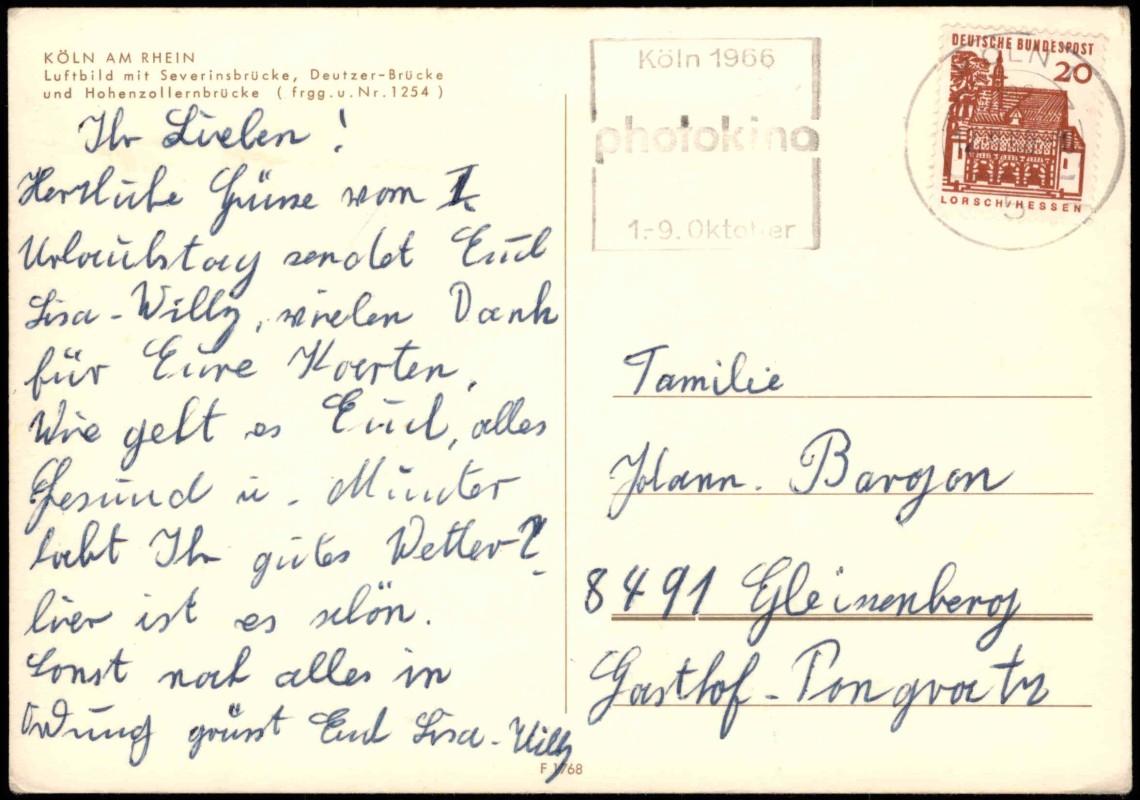 KÖLN AM RHEIN
Luftbild mit Severinsbrücke, Deutzer-Brücke
und Hohenzollernbrücke ( frgg. u. Nr. 1254 )
Ihr Lieben !
Herzliche Grüsse vom I.
Urlaubstag sendet Euch
Lisa - Willy, vielen Dank
für Eure Karten,
Wie geht es Euch, alles
Gesund u. Munter
habt Ihr gutes Wetter?
hier ist es schön.
Sonst noch alles in
Ordnung grüsst Euch Lisa - Willy
F 1768
Köln 1966
photokina
1.-9. Oktober
DEUTSCHE BUNDESPOST
20
LORSCH/HESSEN
KÖLN
Familie
Johann. Bargon
8491 Gleissenberg
Gasthof - Pongratz